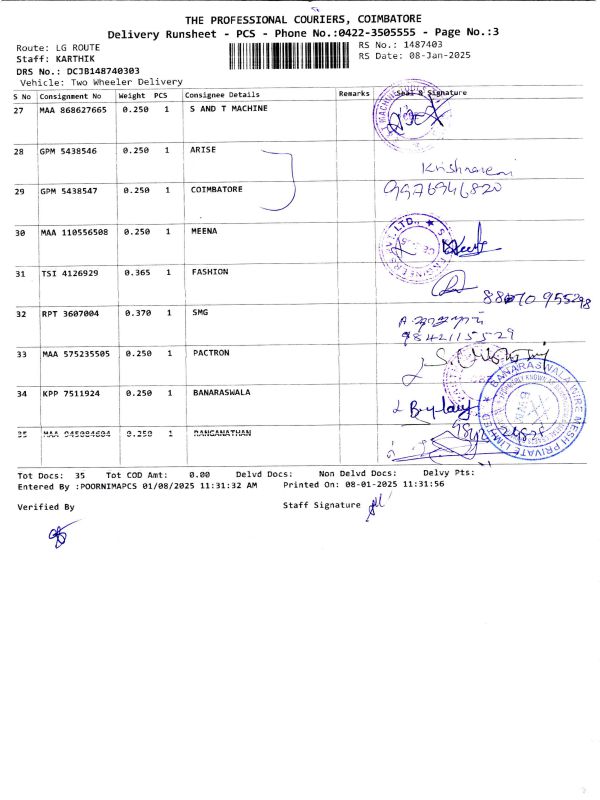 THE PROFESSIONAL COURIERS, COIMBATORE
Delivery Runsheet - PCS - Phone No.:0422-3505555 - Page No.:3
Route: LG ROUTE
RS No.: 1487403
Staff: KARTHIK
RS Date: 08-Jan-2025
DRS No.: DCJB148740303
Vehicle: Two Wheeler Delivery
S No Consignment No Weight PCS Consignee Details Remarks Seal & Signature
27 MAA 868627665 0.250 1 S AND T MACHINE
28 GPM 5438546 0.250 1 ARISE
29 GPM 5438547 0.250 1 COIMBATORE
9976946820
30 MAA 110556508 0.250 1 MEENA
31 TSI 4126929 0.365 1 FASHION
32 RPT 3607004 0.370 1 SMG
9842115529
33 MAA 575235505 0.250 1 PACTRON
34 KPP 7511924 0.250 1 BANARASWALA
BANARASWALA WIRE MESH PRIVATE LIMITED
35 MAA 945084684 0.250 1 RANGANATHAN
Tot Docs: 35 Tot COD Amt: 0.00 Delvd Docs: Non Delvd Docs: Delvy Pts:
Entered By :POORNIMAPCS 01/08/2025 11:31:32 AM Printed On: 08-01-2025 11:31:56
Verified By
Staff Signature